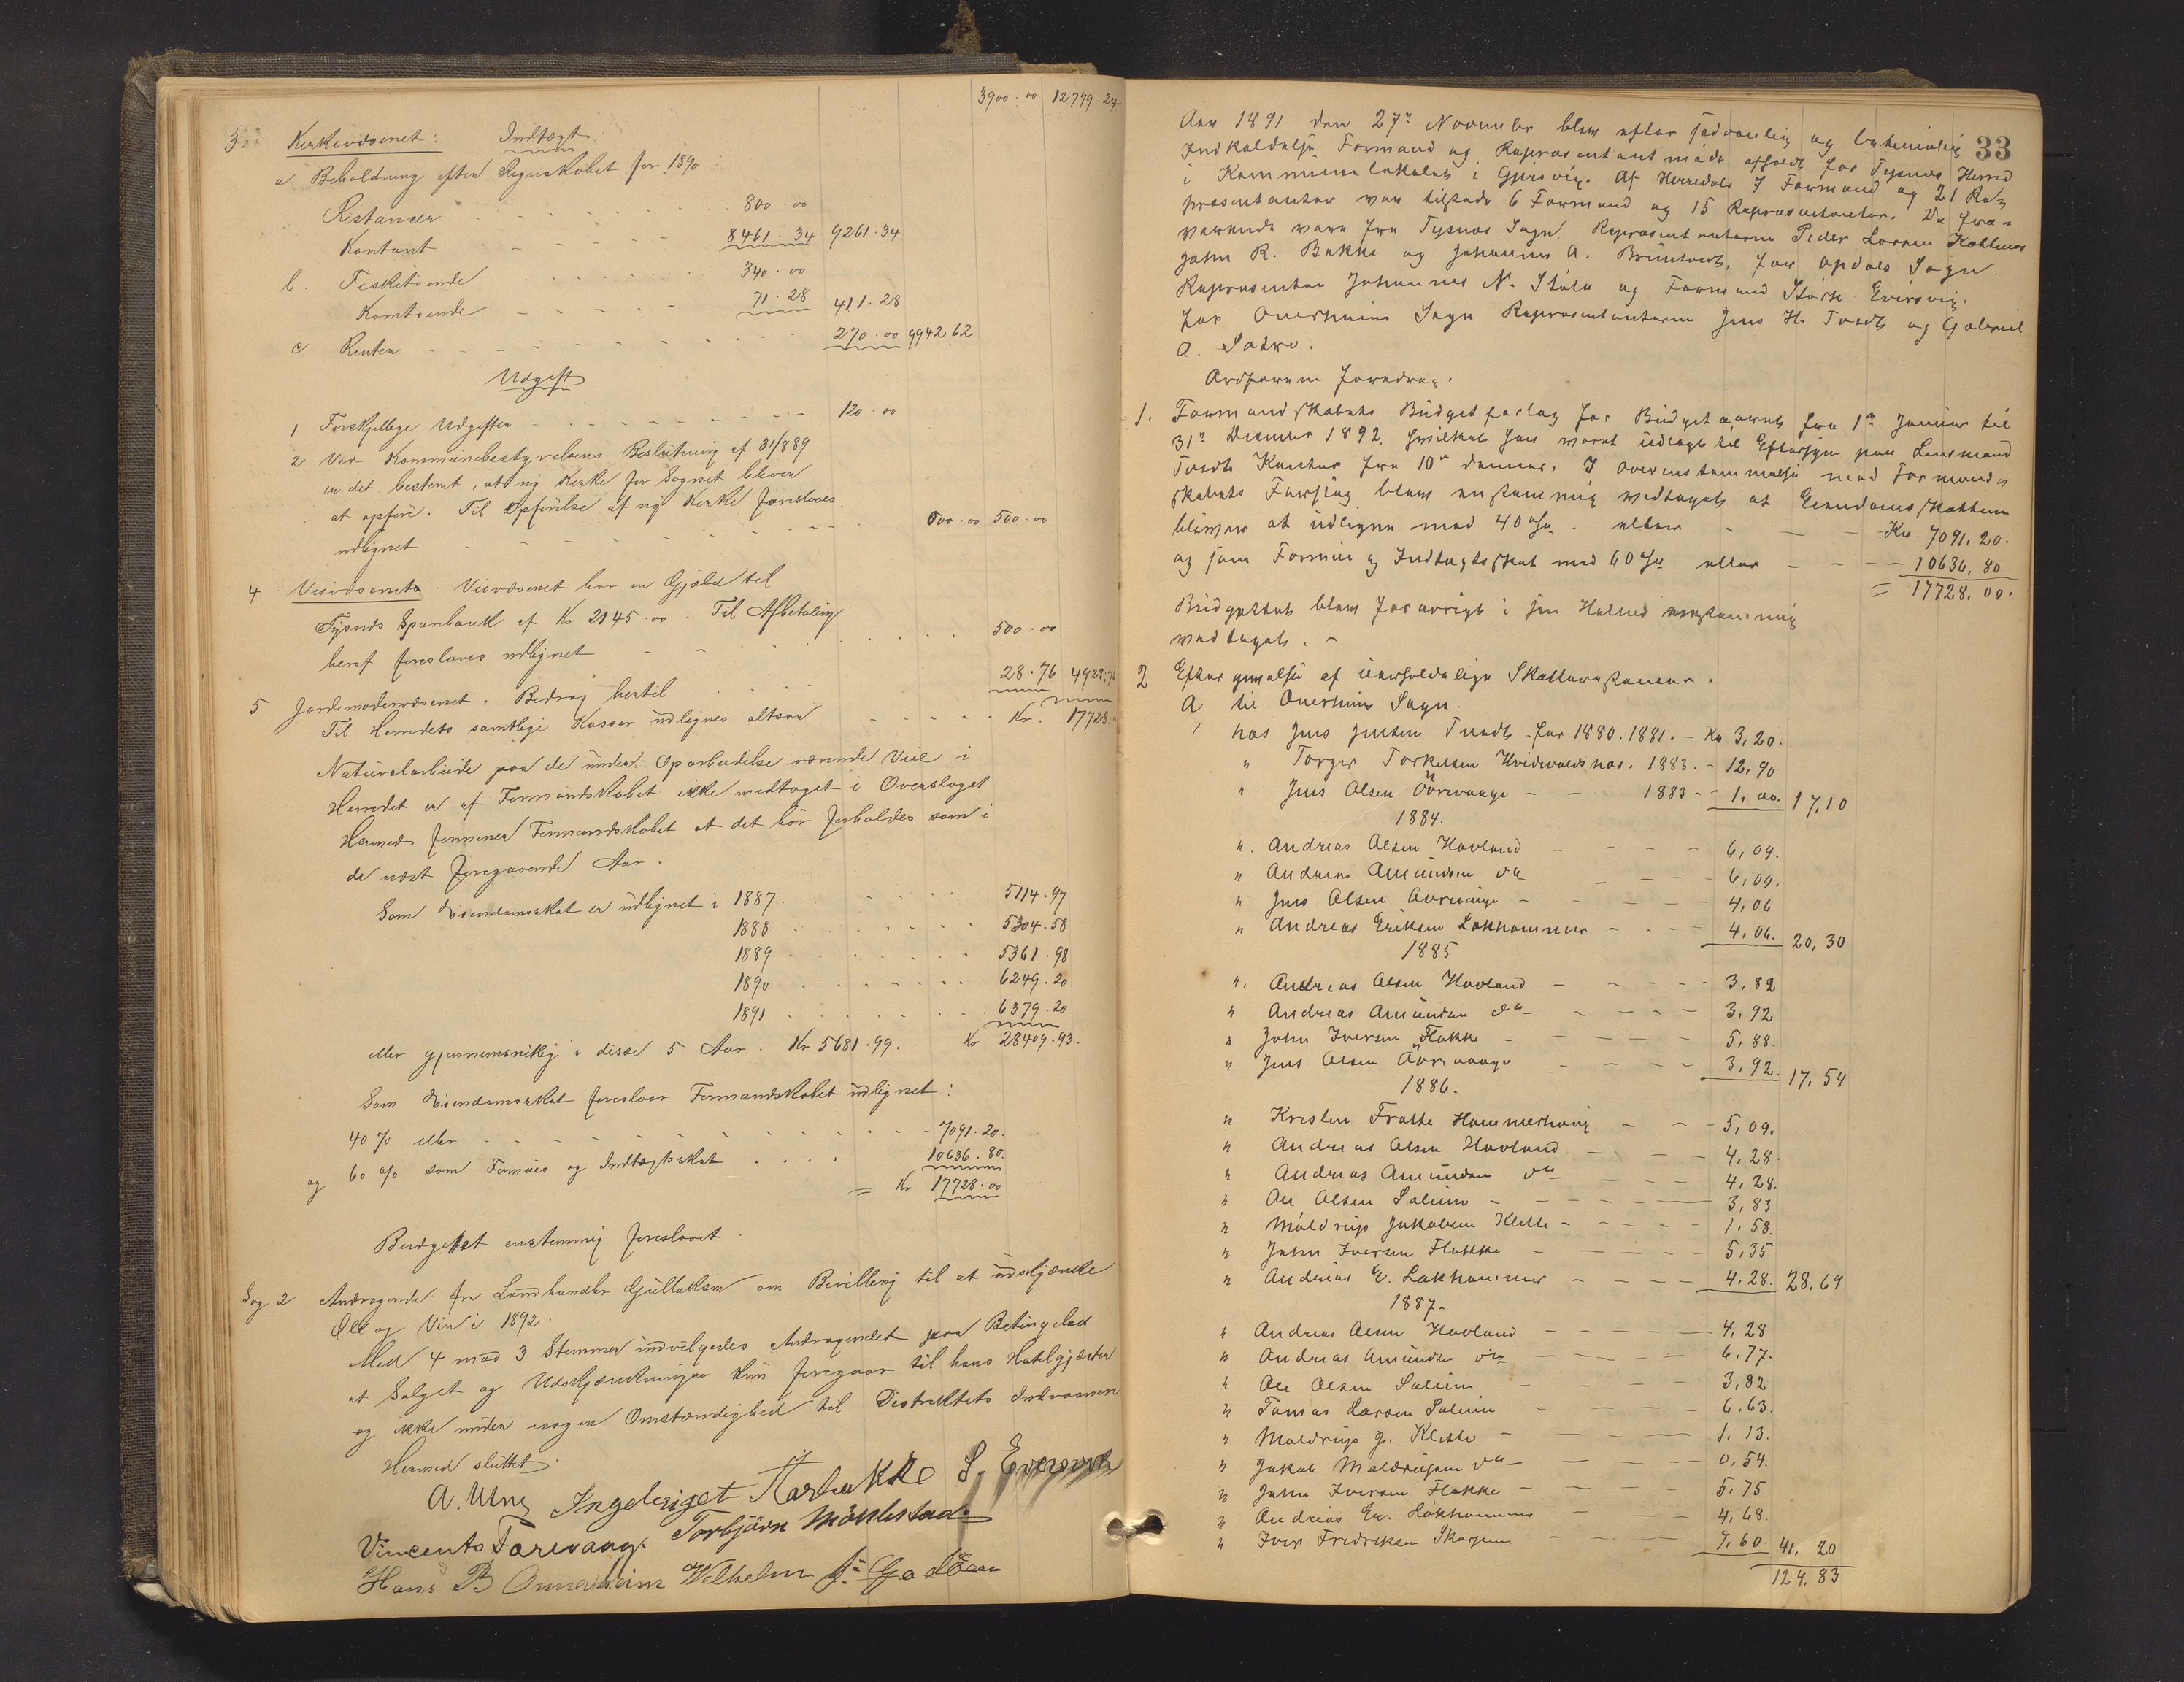 3900.00 12799.24
3 Kirkevæsenet: Indtægt.
a Beholdning efter Regnskabet for 1890:
Restancer 800.00
Kontant 8461.34 9261.34
b. Fisketiende 340.00
Korntiende 71.28 411.28
c Renter 270.00 9942.62
Udgift
1 Forskjellige Udgifter 120.00
2 Ved Kommunebestyrelsens Beslutning af 31/889
er det bestemt, at ny Kirke for Sognet bliver
at opføre. Til Opførelse af ny Kirke foreslaaes
udlignet 500.00 500.00
4 Veivæsenet. Veivæsenet har en Gjæld til
Tysnæs Sparebank af Kr 2145.00. Til Afbetaling
heraf foreslaaes udlignet 500.00
5 Jordmodervæsenet. Bidrag hertil 28.76 4928.76
Til Herredets samtlige Kasser udlignes altsaa Kr. 17728.
Naturalarbeide paa de under Oparbeidelse værende Veie i
Herredet er af Formandskabet ikke medtaget i Overslaget
Hermed formener Formandskabet at det bør forholdes som i
de næst foregaaende Aar.
Som Eiendomsskat er udlignet i 1887 5114.97
1888 5304.58
1889 5361.98
1890 6249.20
1891 6379.20
eller gjennemsnitlig i disse 5 Aar. Kr 5681.99. Kr 28409.93.
Som Eiendomsskat foreslaar Formandskabet udlignet:
40 % eller 7091.20.
og 60 % som Formues og Indtægtsskat 10636.80.
= Kr 17728.00
Budgettet enstemmig foreslaaet.
Sag 2 Andragende fra Landhandler Gullaksen om Bevilling til at udskjænke
Øll og Vin i 1892.
Med 4 mod 3 Stemmer indvilgedes Andragendet paa Betingelse
at Salget og Udskjænkningen kun foregaar til hans Hotelgjæster
og ikke under nogen Omstændighed til Distriktets Indvaanere
Hermed sluttet.
A. Ingebrigt S.
Vincents Torbjørn
Hans B Onnerheim Wilhelm
33
Aar 1891 den 27de November blev efter sædvanlig og betimelig
Indkaldelse Formand og Repræsentantmøde afholdt for Tysnæs Herred
i Kommunelokalet i Gjersvig. Af Herredets 7 Formænd og 21 Re-
præsentanter var tilstede 6 Formænd og 15 Repræsentanter. De fra-
værende vare fra Tysnæs Sogn Repræsentanterne Peder Larsen
John R. Bakke og Johannes A. Brüntvedt, for Opdals Sogn
Repræsentan Johannes N. Støle og Formand Størk Eversvig.
for Onerheims Sogn Repræsentanterne Jens H. Tvedt og Gabriel
A.
Ordføreren foredrog.
1. Formandskabets Budgetforlag for Budgetaaret fra 1ste Januar til
31te Desember 1892, hvilket har været udlagt til Eftersyn paa Lensmand
Tvedts Kontor fra 10de dennes. I overenstemmelse med Formand-
skabets Forslag blev enstemmig vedtaget at Eiendomsskatten
bliver at udligne med 40 % eller Kr. 7091,20.
og som Formue og Indtægtsskat med 60 % eller 10636,80
= 17728,00.
Budgettet blev forøvrigt i sin Helhed enstemmig
vedtaget.
2 Eftergivelse af uerholdelige Skatterestancer.
A til Onerheims Sogn.
hos Jens Jensen Tvedt for 1880.1881. Kr 3,20.
" Torger Torkelsen Hvidevoldsnes. 1883. 12,90
" Jens Olsen Øvrevaage 1883 1,00. 17,10
1884.
". Andreas Olsen Hovland 6,09.
" Andreas Amundsen do 6,09.
" Jens Olsen Øvrevaage 4,06
" Andreas Eriksen Lokhammer 4,06. 20,30
1885
". Andreas Olsen Hovland 3,82
" Andreas Amundsen do 3,92
" John Iversen Flakke 5,88.
" Jens Olsen Øvrevaage 3,92. 17,54
1886.
" Kristen Frotte Hammerhoug 5,09.
" Andreas Olsen Hovland 4,28.
" Andreas Amundsen do 4,28.
" Ole Olsen Soleim 3,83.
" Moldrup Jakobsen Klette 1.58.
" John Iversen Flakke 5,35
" Andreas E. Lokhammer 4,28. 28,69
1887.
" Andreas Olsen Hovland 4,28
" Andreas Amundsen do 6.77.
" Ole Olsen Soleim 3,82
" Tomas Larsen Soleim 6.63.
" Moldrup J. Klette 1.13.
" Jakob Moldrupsen do 0,54.
" John Iversen Flakke 5.75
" Andreas Er. Lokhammer 4,68.
" Iver Fredriksen Skarpen 7,60. 41,20
124,83